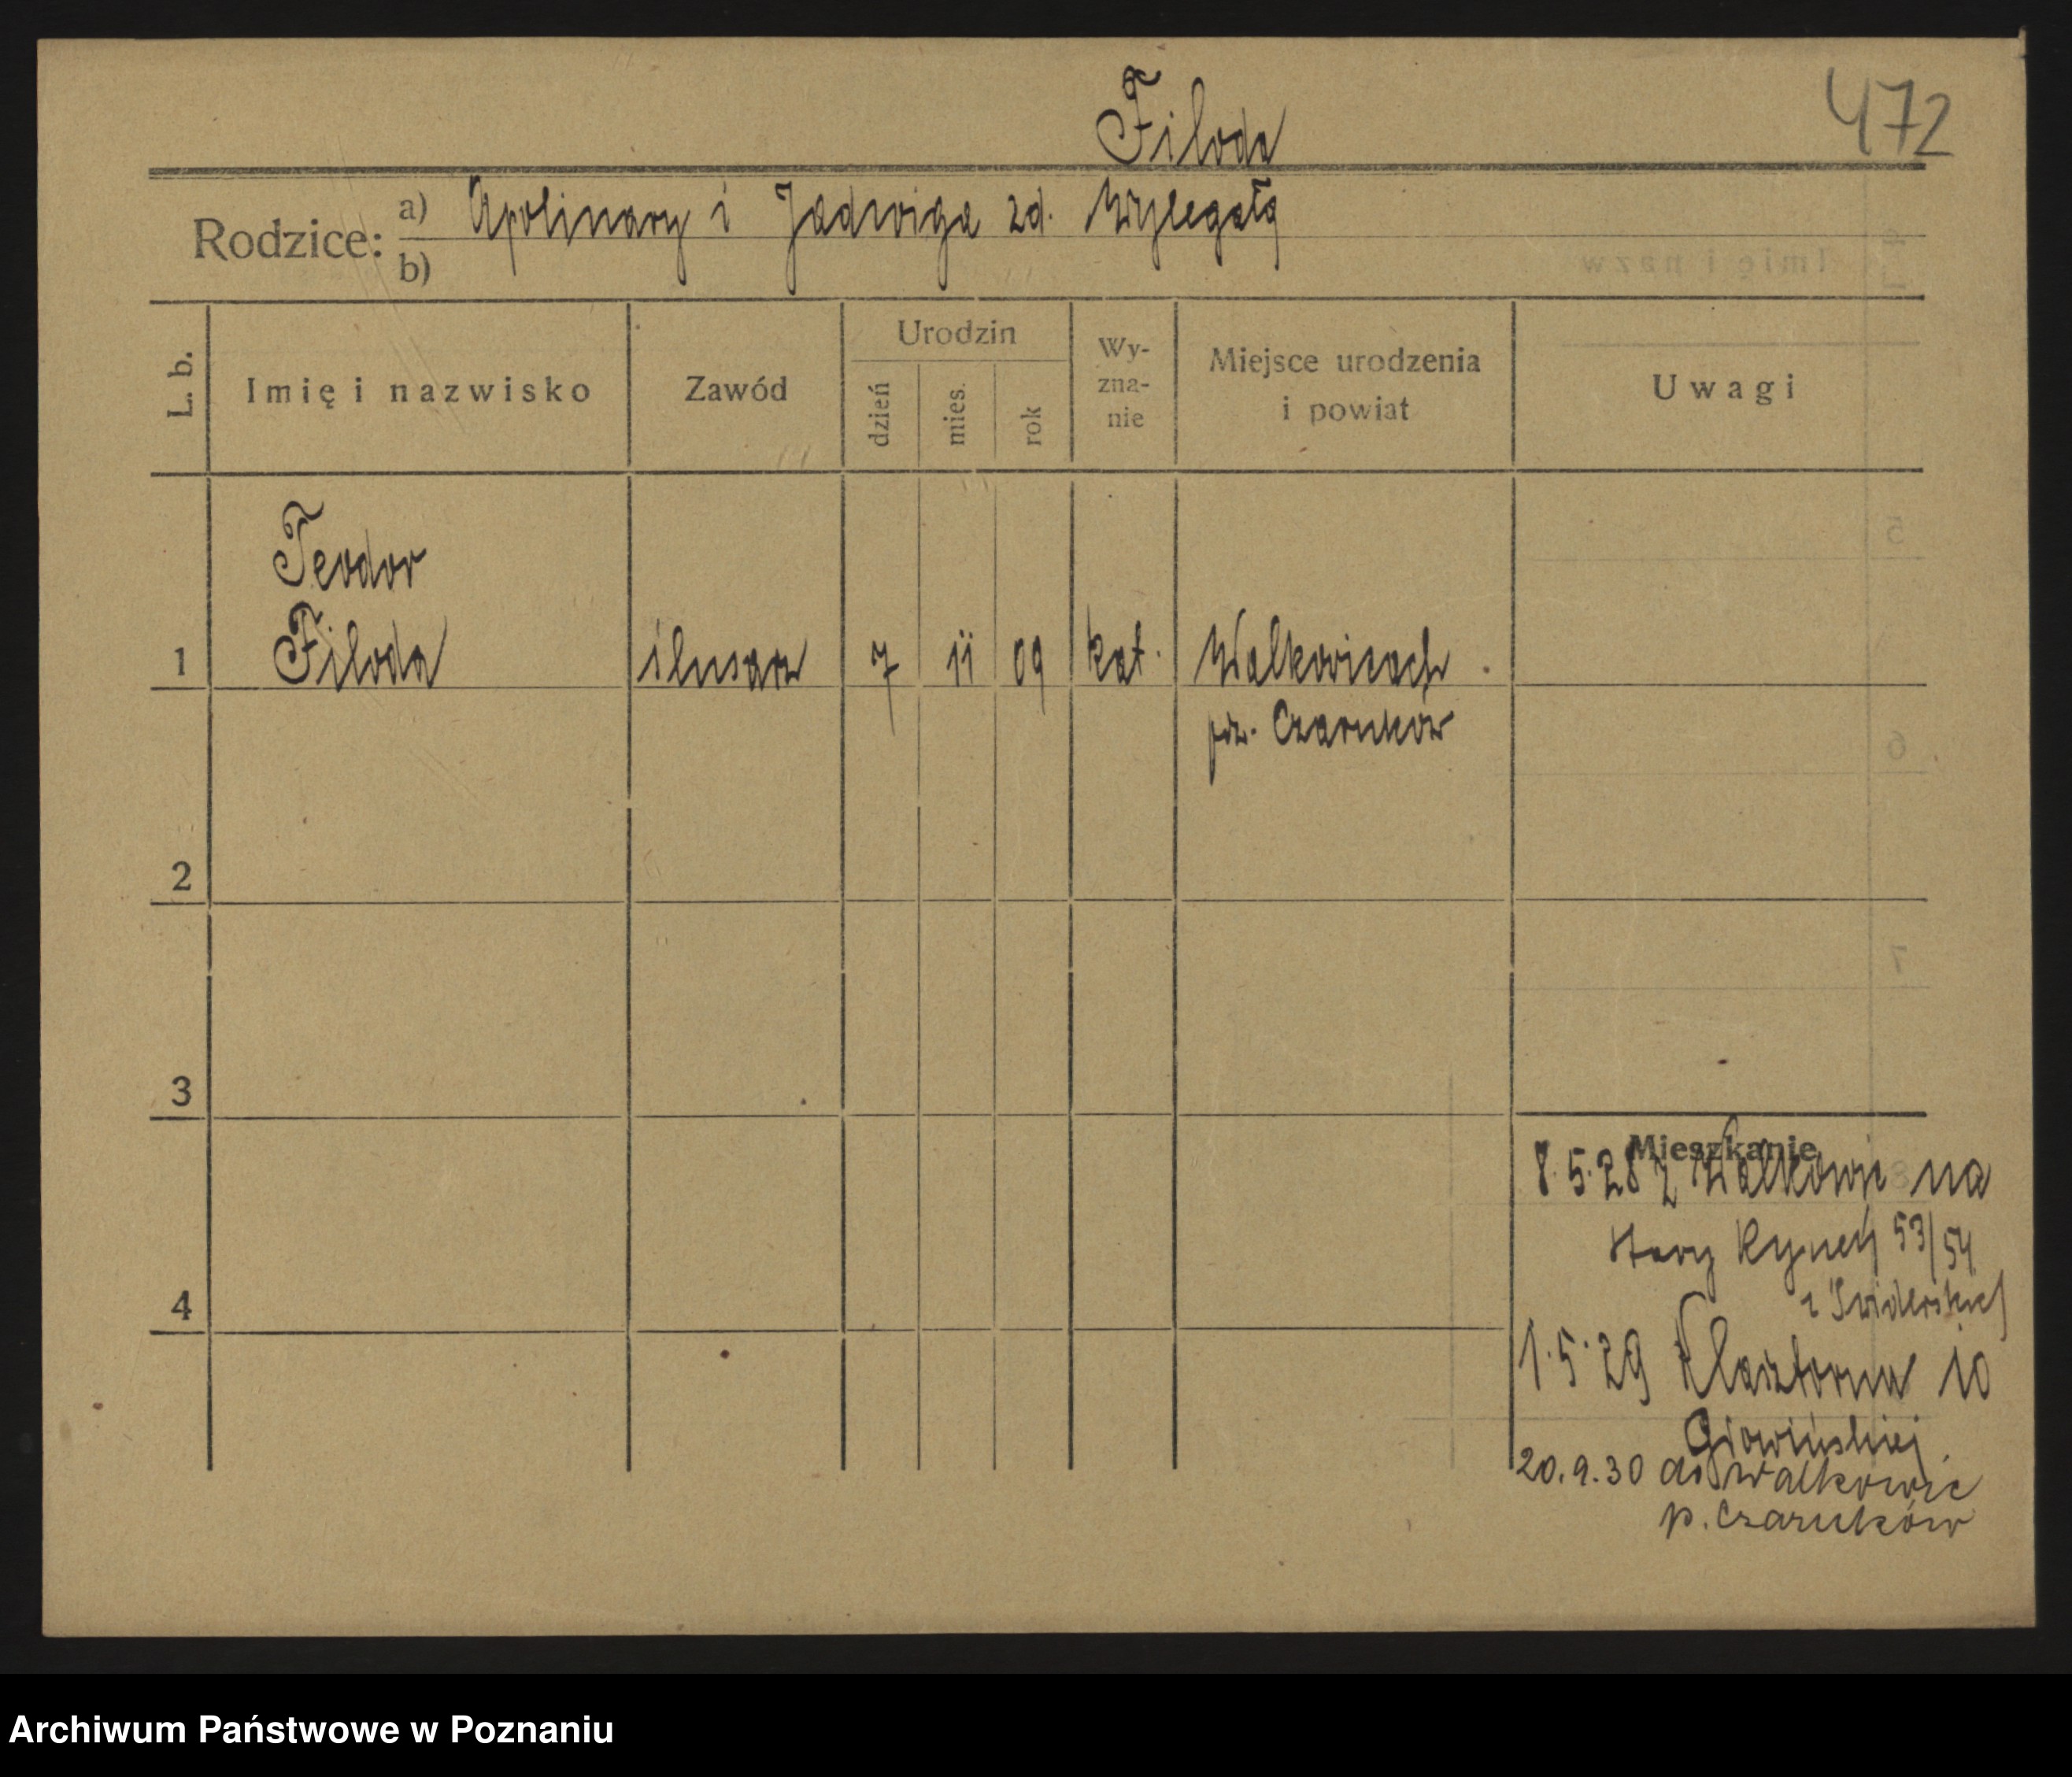 Filoda
472
Rodzice:
a) Apolinary i Jadwiga zd. Wylegała
b)
L. b.
Imię i nazwisko
Zawód
Urodzin
dzień
mies.
rok
Wy-
zna-
nie
Miejsce urodzenia
i powiat
Uwagi
Teodor
1 Filoda ślusarz 7 11 09 kat. Walkowicach
pw. Czarnków
2
3
Mieszkanie
8.5.28 z Walkowic na
Stary Rynek 53/54
4
1.5.29 Klasztorna 10
20.9.30 do Walkowic
p. Czarnków
Archiwum Państwowe w Poznaniu